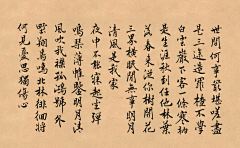 世間何事最堪嗟盡
是三途造罪楂不學
白雲巖下客一條寒衲
是生涯秋到任他林葉
落春來從你樹開花
三界橫眠閑無事明月
清風是我家
夜中不能寐起坐彈
鳴琴薄帷鑒明月清
風吹我襟孤鴻號外
野翔鳥鳴北林徘徊將
何見憂思獨傷心